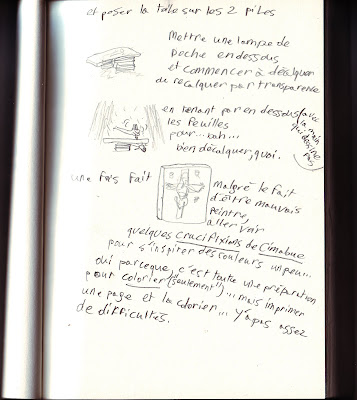 et poser la tole sur les 2 piles
Mettre une lampe de
poche en dessous
et commencer à décalquer
ou recalquer par transparence
en tenant par en dessous (avec
la main
qui dessine
pas)
les feuilles
pour... bah...
bien décalquer, quoi.
une fois fait
malgré le fait
d'être mauvais
peintre,
aller voir
quelques crucifixions de Cimabue
pour s'inspirer des couleurs un peu...
oui parceque, c'est toute une préparation
pour colorier (seulement)... mais imprimer
une page et la colorier... y'a pas assez
de difficultés.